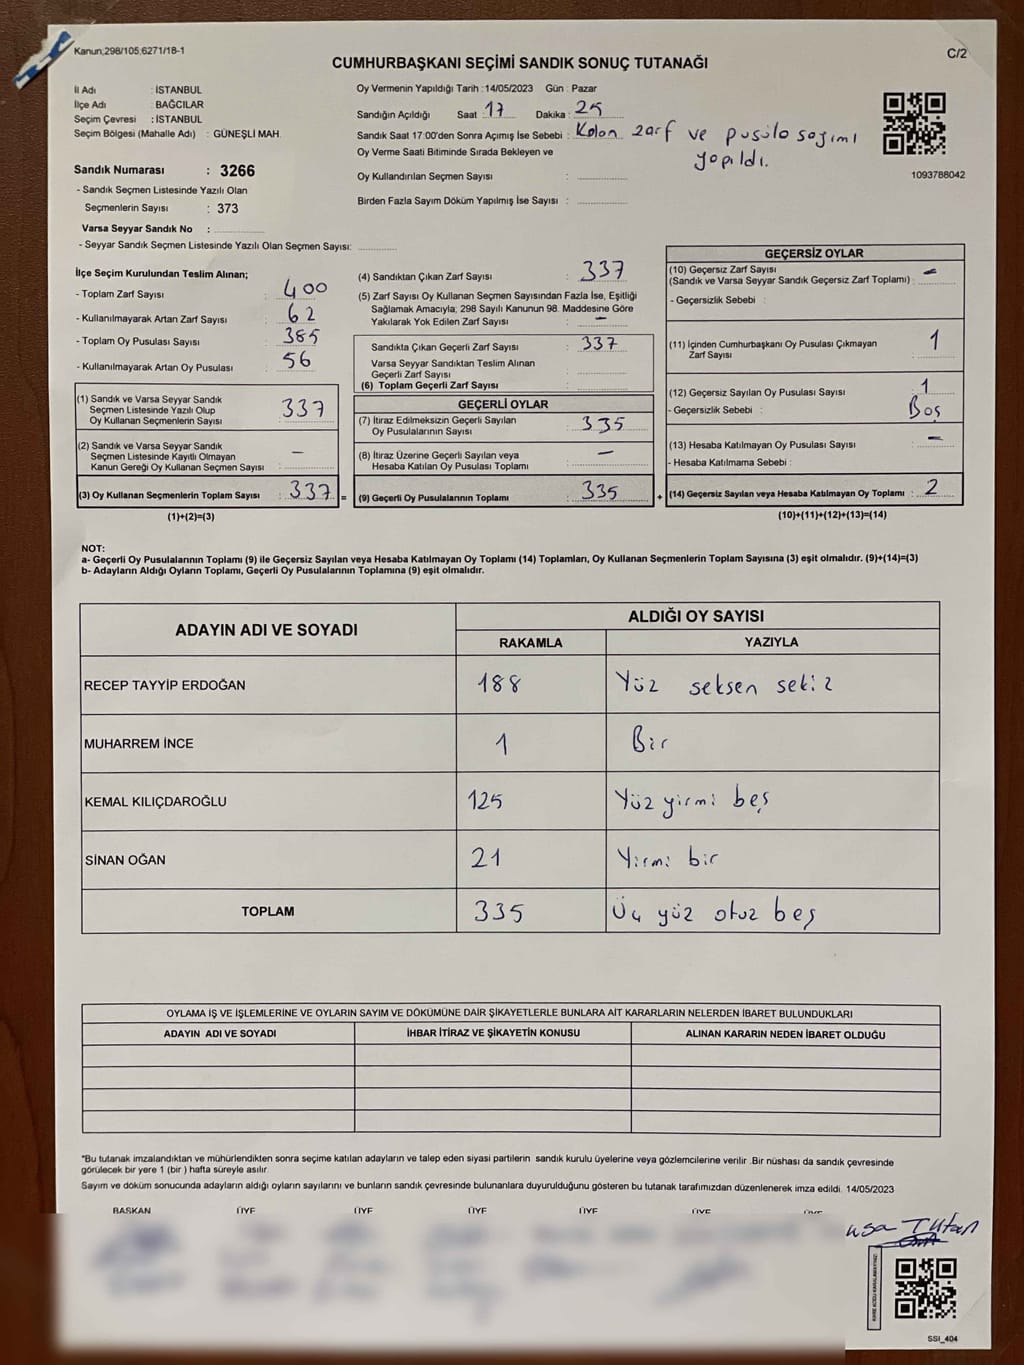 Kanun;298/105,6271/18-1
C/2
CUMHURBAŞKANI SEÇİMİ SANDIK SONUÇ TUTANAĞI
İl Adı : İSTANBUL
İlçe Adı : BAĞCILAR
Seçim Çevresi : İSTANBUL
Seçim Bölgesi (Mahalle Adı) : GÜNEŞLİ MAH.
Sandık Numarası : 3266
- Sandık Seçmen Listesinde Yazılı Olan
Seçmenlerin Sayısı : 373
Varsa Seyyar Sandık No :
- Seyyar Sandık Seçmen Listesinde Yazılı Olan Seçmen Sayısı:
Oy Vermenin Yapıldığı Tarih :14/05/2023 Gün : Pazar
Sandığın Açıldığı Saat : 17 Dakika : 25
Sandık Saat 17:00'den Sonra Açımış İse Sebebi : Kalan zarf ve pusula sayımı
yapıldı.
Oy Verme Saati Bitiminde Sırada Bekleyen ve
Oy Kullandırılan Seçmen Sayısı :
Birden Fazla Sayım Döküm Yapılmış İse Sayısı :
1093788042
İlçe Seçim Kurulundan Teslim Alınan;
- Toplam Zarf Sayısı : 400
- Kullanılmayarak Artan Zarf Sayısı : 62
- Toplam Oy Pusulası Sayısı : 385
- Kullanılmayarak Artan Oy Pusulası : 56
(1) Sandık ve Varsa Seyyar Sandık
Seçmen Listesinde Yazılı Olup
Oy Kullanan Seçmenlerin Sayısı : 337
(2) Sandık ve Varsa Seyyar Sandık
Seçmen Listesinde Kayıtlı Olmayan
Kanun Gereği Oy Kullanan Seçmen Sayısı : –
(3) Oy Kullanan Seçmenlerin Toplam Sayısı : 337 =
(1)+(2)=(3)
(4) Sandıktan Çıkan Zarf Sayısı : 337
(5) Zarf Sayısı Oy Kullanan Seçmen Sayısından Fazla İse, Eşitliği
Sağlamak Amacıyla; 298 Sayılı Kanunun 98. Maddesine Göre
Yakılarak Yok Edilen Zarf Sayısı : –
Sandıkta Çıkan Geçerli Zarf Sayısı : 337
Varsa Seyyar Sandıktan Teslim Alınan
Geçerli Zarf Sayısı :
(6) Toplam Geçerli Zarf Sayısı :
GEÇERLİ OYLAR
(7) İtiraz Edilmeksizin Geçerli Sayılan
Oy Pusulalarının Sayısı : 335
(8) İtiraz Üzerine Geçerli Sayılan veya
Hesaba Katılan Oy Pusulası Toplamı : –
(9) Geçerli Oy Pusulalarının Toplamı : 335 +
GEÇERSİZ OYLAR
(10) Geçersiz Zarf Sayısı
(Sandık ve Varsa Seyyar Sandık Geçersiz Zarf Toplamı) : –
- Geçersizlik Sebebi :
(11) İçinden Cumhurbaşkanı Oy Pusulası Çıkmayan
Zarf Sayısı : 1
(12) Geçersiz Sayılan Oy Pusulası Sayısı : 1
- Geçersizlik Sebebi : Boş
(13) Hesaba Katılmayan Oy Pusulası Sayısı : –
- Hesaba Katılmama Sebebi :
(14) Geçersiz Sayılan veya Hesaba Katılmayan Oy Toplamı : 2
(10)+(11)+(12)+(13)=(14)
NOT:
a- Geçerli Oy Pusulalarının Toplamı (9) ile Geçersiz Sayılan veya Hesaba Katılmayan Oy Toplamı (14) Toplamları, Oy Kullanan Seçmenlerin Toplam Sayısına (3) eşit olmalıdır. (9)+(14)=(3)
b- Adayların Aldığı Oyların Toplamı, Geçerli Oy Pusulalarının Toplamına (9) eşit olmalıdır.
ADAYIN ADI VE SOYADI
ALDIĞI OY SAYISI
RAKAMLA YAZIYLA
RECEP TAYYİP ERDOĞAN 188 Yüz seksen sekiz
MUHARREM İNCE 1 Bir
KEMAL KILIÇDAROĞLU 125 Yüz yirmi beş
SİNAN OĞAN 21 Yirmi bir
TOPLAM 335 Üç yüz otuz beş
OYLAMA İŞ VE İŞLEMLERİNE VE OYLARIN SAYIM VE DÖKÜMÜNE DAİR ŞİKAYETLERLE BUNLARA AİT KARARLARIN NELERDEN İBARET BULUNDUKLARI
ADAYIN ADI VE SOYADI İHBAR İTİRAZ VE ŞİKAYETİN KONUSU ALINAN KARARIN NEDEN İBARET OLDUĞU
*Bu tutanak imzalandıktan ve mühürlendikten sonra seçime katılan adayların ve talep eden siyasi partilerin sandık kurulu üyelerine veya gözlemcilerine verilir .Bir nüshası da sandık çevresinde
görülecek bir yere 1 (bir ) hafta süreyle asılır.
Sayım ve döküm sonucunda adayların aldığı oyların sayılarını ve bunların sandık çevresinde bulunanlara duyurulduğunu gösteren bu tutanak tarafımızdan düzenlenerek imza edildi. 14/05/2023
BAŞKAN ÜYE ÜYE ÜYE ÜYE ÜYE ÜYE
usa Tutan
SSI_404